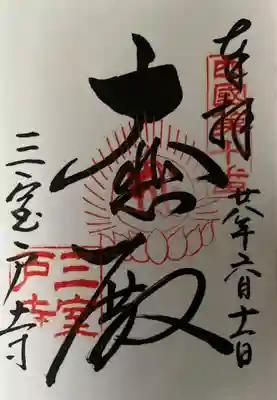 奉拝
西國第十番
廿八年六月
大悲殿
三室戸寺
三室
戸寺